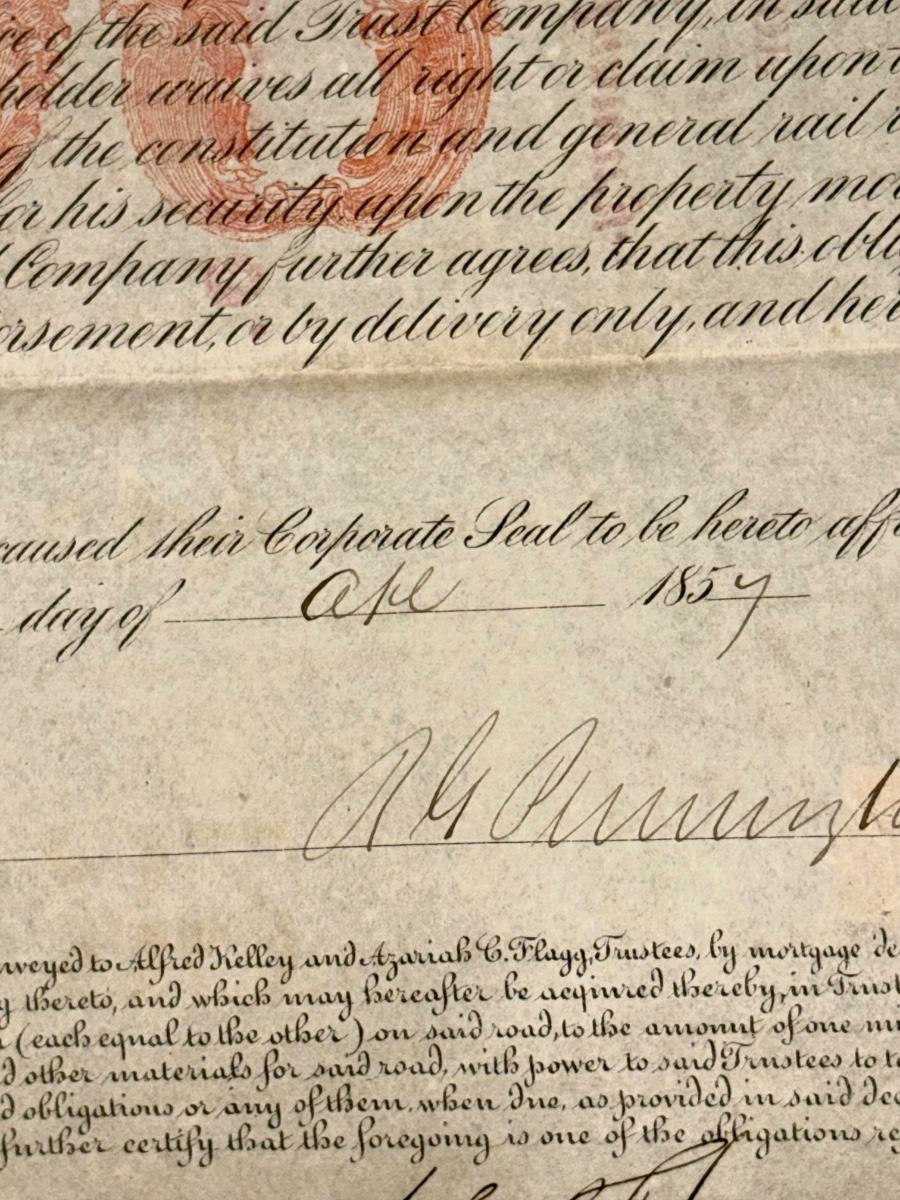 ce of the said Trust Company, in said
holder waives all right or claim upon
of the constitution and general rail
for his security upon the property mo
Company further agrees, that this obli
orsement, or by delivery only, and her
caused their Corporate Seal to be hereto aff
day of Apl 1857
nveyed to Alfred Kelley and Azariah C. Flagg, Trustees, by mortgage de
y thereto, and which may hereafter be acqiured thereby, in Trust
(each equal to the other) on said road, to the amount of one mi
d other materials for said road, with power to said Trustees to t
d obligations or any of them, when due, as provided in said dee
further certify that the foregoing is one of the obligations re